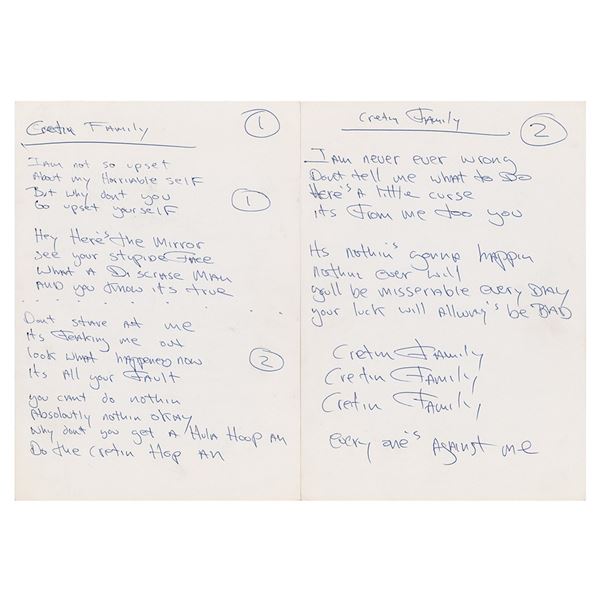 Cretin Family
1
I Am not so upset
About my Horrimable self
But why dont you
Go upset yourself
1
Hey Here's the Mirror
see your stupide Face
What A Discrase Man
And you know its true
Dont stare At me
Its Freaking me out
look what happened now
Its All your Fault
2
you cant do nothin
Absoloutly nothin okay
Why dont you get A Hula Hoop An
Do the Cretin Hop An
Cretin Family
2
I Am never ever wrong
Dont tell me what to Do
Here's A little curse
its From me too you
Its nothin's gonna happin
nothin ever will
youll be misserable every DAy
your luck will Allway's be BAD
Cretin Family
Cretin Family
Cretin Family
Every one's Against me